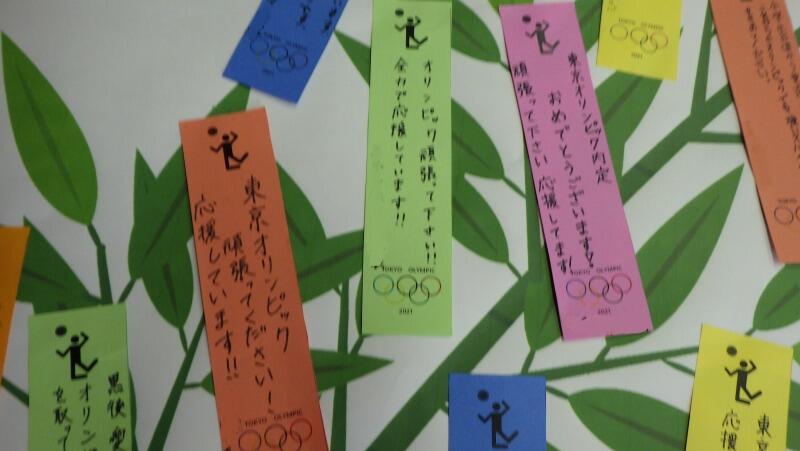 東京オリンピック
頑張ってください!
応援しています!!
TOKYO OLYMPIC
オリンピック頑張って下さい!!
全力で応援しています!!
TOKYO OLYMPIC
2021
東京オリンピック内定
おめでとうございます!
頑張って下さい 応援してます!
TOKYO OLYMPIC
2021
2021
TOKYO OLYMPIC
2021
黒後 愛
オリン
を取って
東京
応援